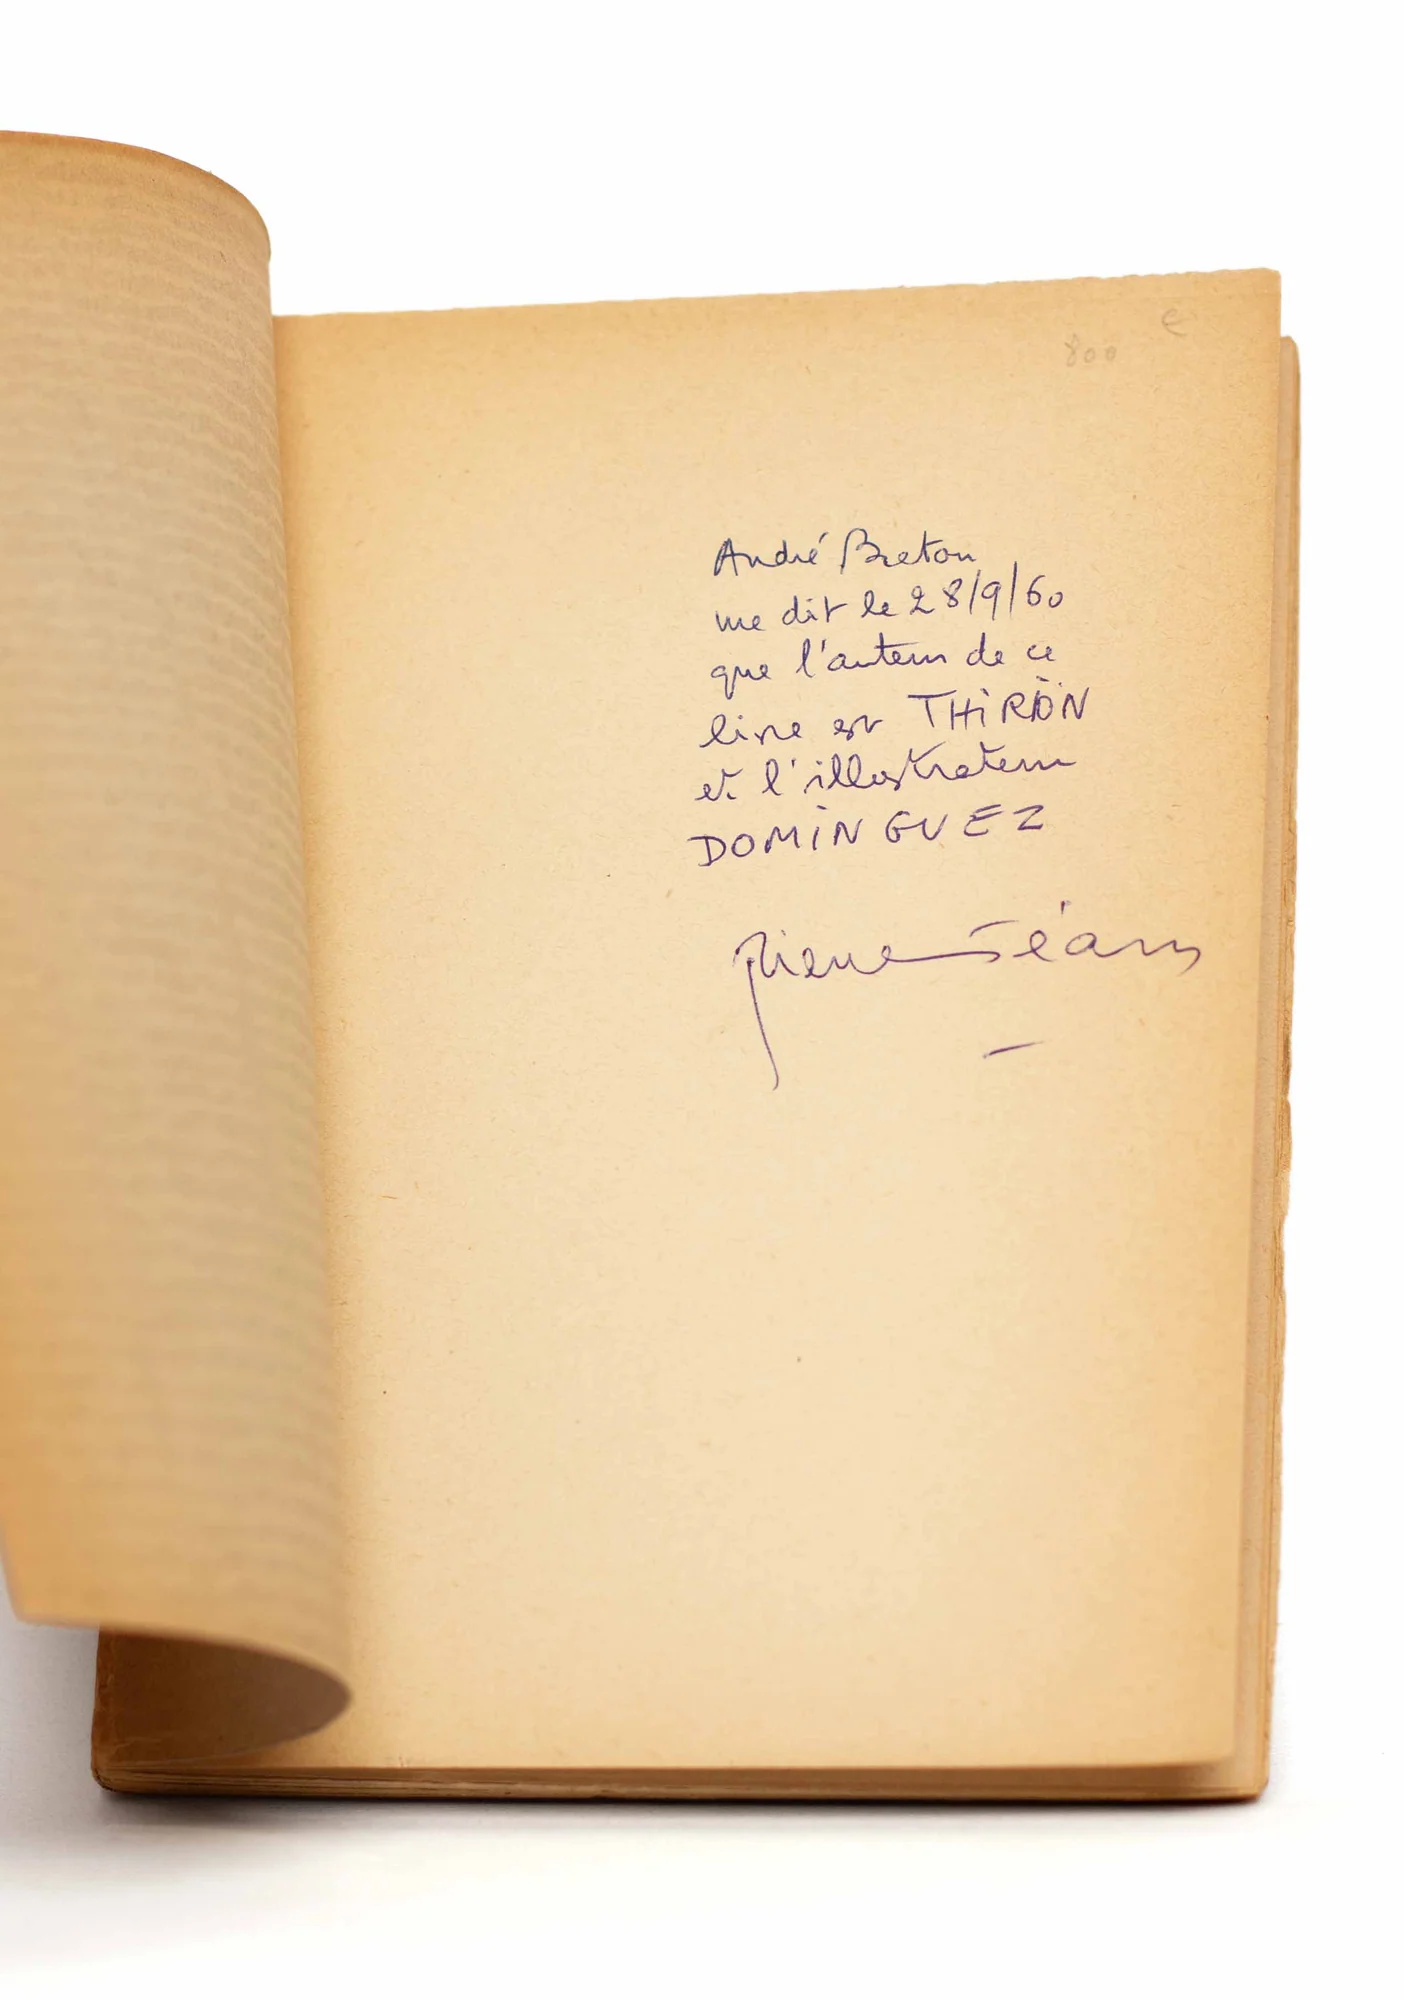 €
800
André Breton
me dit le 28/9/60
que l'auteur de ce
livre est THIRION
et l'illustrateur
DOMINGUEZ
Pierre